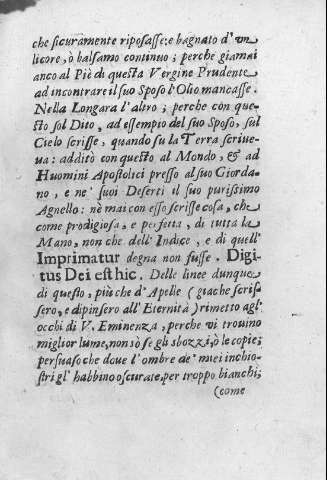 che sicuramente riposasse: e bagnato d' vn
licore, ò balsamo continuo; perche giamai
anco al Piè di questa Vergine Prudente
ad incontrare il suo Sposo l'Olio mancasse.
Nella Longara l'altro; perche con que-
sto sol Dito, ad essempio del suo Sposo, sul
Cielo scrisse, quando su la Terra scriue-
ua: additò con questo al Mondo, & ad
Huomini Apostolici presso al suo Giorda-
no, e ne' suoi Deserti il suo purissimo
Agnello: nè mai con esso scrisse cosa, che
come prodigiosa, e perfetta, di tutta la
Mano, non che dell' Indice, e di quell'
Imprimatur degna non fusse. Digi-
tus Dei est hic. Delle linee dunque
di questo, più che d' Apelle (giache scris-
sero, e dipinsero all' Eternità) rimetto agl'
occhi di V. Eminenza, perche vi trouino
miglior lume, non sò se gli sbozzi, ò le copie;
persuaso che doue l'ombre de' miei inchio-
stri gl' habbino oscurate, per troppo bianchi;
(come